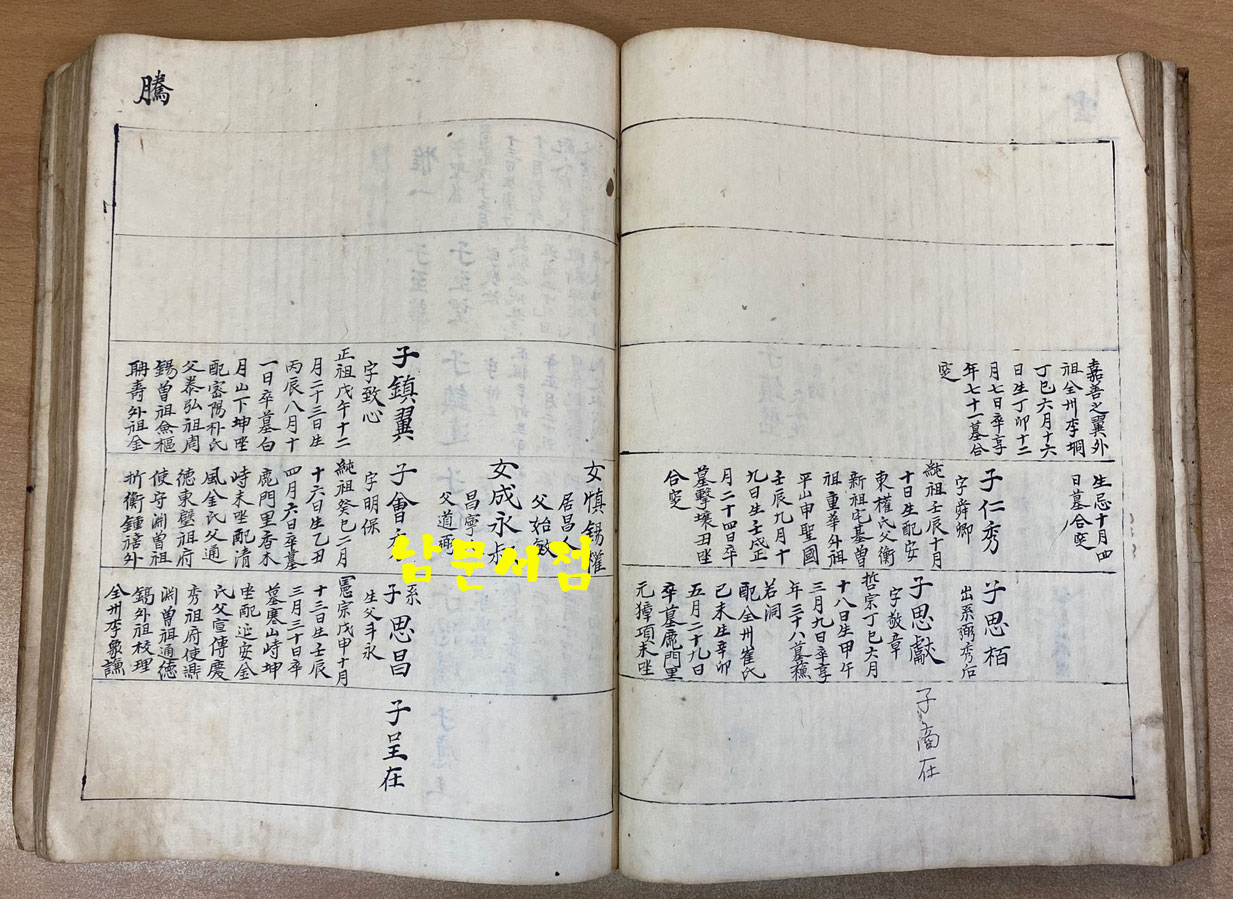 嘉善之翼外
祖全州李埛
丁巳六月十六
日生丁卯十二
月七日卒享
年七十一墓合
窆
生忌十月四
日墓合窆
子仁秀
字舜卿
純祖壬辰十月
十日生配安
東權氏父衡
新祖宅基曽
祖重華外祖
平山申聖國
壬辰九月十
九日生壬戌正
月二十四日卒
墓擊壤丑坐
合窆
子思栢
出系弼秀后
子思獻
字敬章
哲宗丁巳六月
十八日生甲午
三月九日卒享
年三十八墓
若洞
配全州崔氏
己未生辛卯
五月二十九日
卒墓鹿門里
元獐項未坐
子商在
騰
子鎮翼
字致心
正祖戊午十二
月二十三日生
丙辰八月十
一日卒墓白
月山下坤坐
配密陽朴氏
父泰弘祖周
錫曽祖樞
聃壽外祖金
女慎錫權
居昌人
父始敏
女成永步
昌寧
父道
子會
字明保
純祖癸巳二月
十六日生乙丑
四月六日卒墓
鹿門里香木
峙未坐配清
風金氏父通
德東壁祖府
使守淵曽祖
折衡鍾禧外
系
子思昌
生父斗永
憲宗戊申十月
十三日生壬辰
三月三十日卒
墓寒山峙坤
坐配延安金
氏父宣傳慶
秀祖府使謙
淵曽祖通德
鎬外祖校理
全州李象謙
子呈在
남문서점